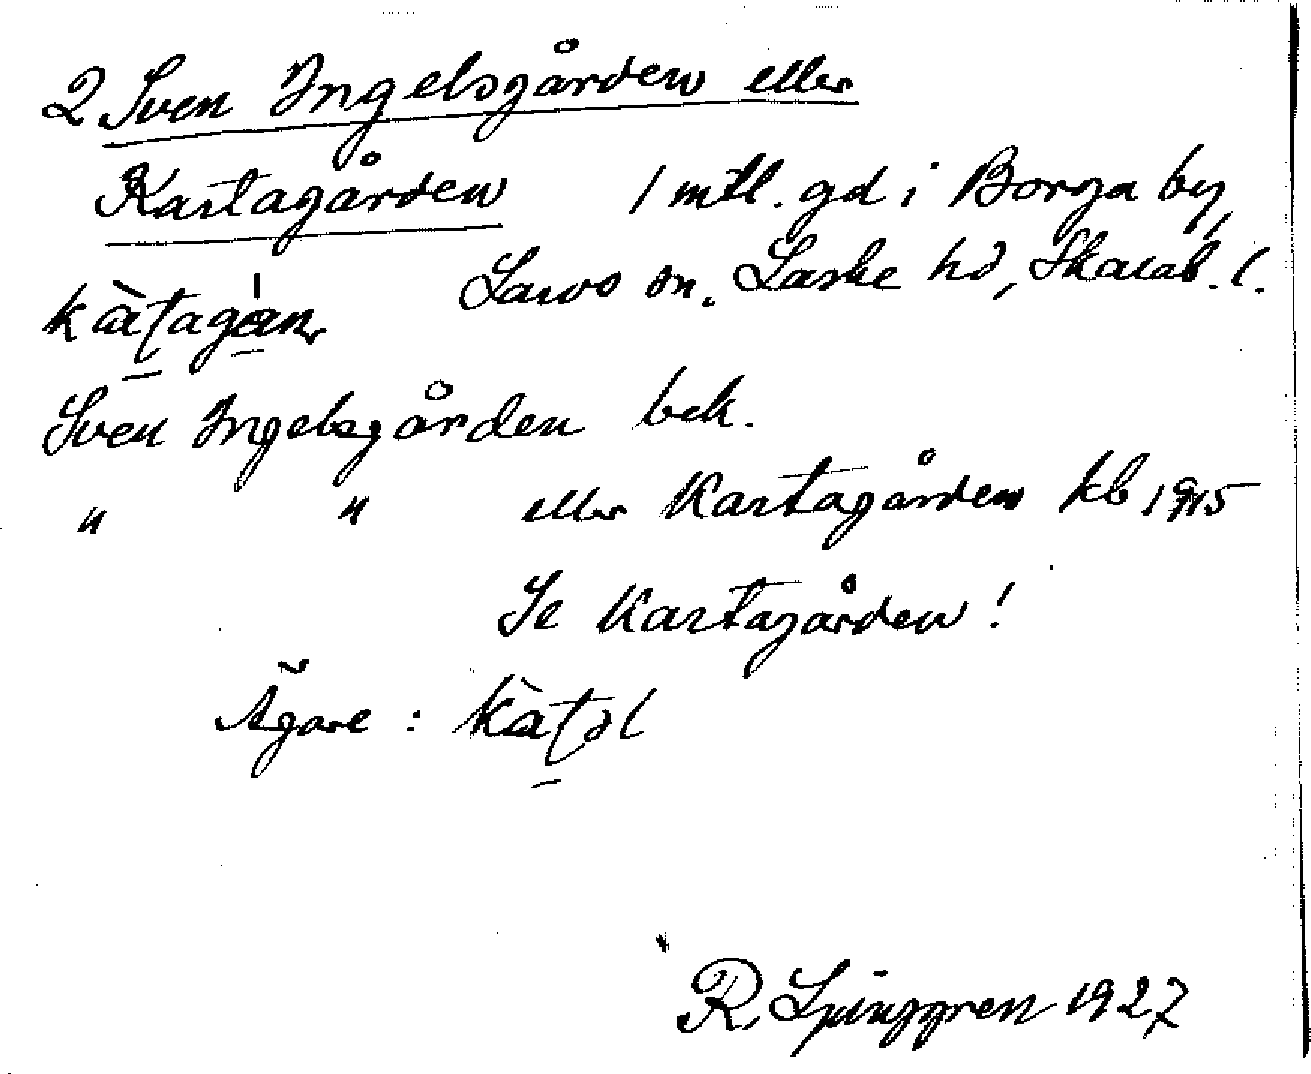 2 Sven Ingelsgården eller
Kartagården 1 mtl. gd i Borga by,
Larvs sn. Laske hd, Skarab. l.
kàṭagáṇ
Sven Ingelsgården bek.
" " eller Kartagården kb 1915
Se Kartagården!
Ägare: kàṭəl
R. Ljunggren 1927